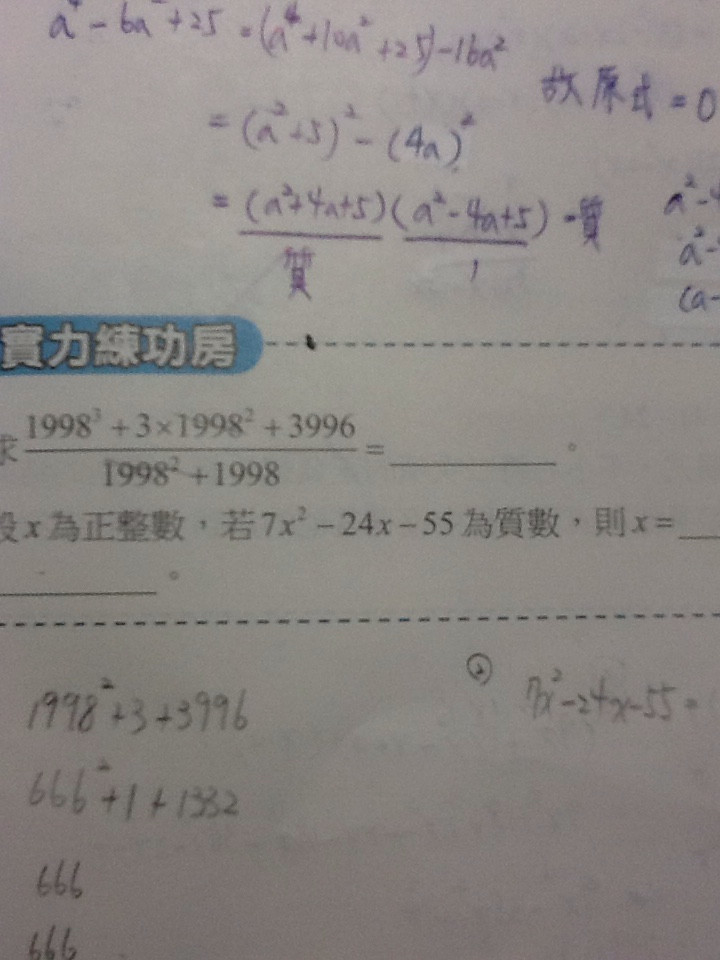 a⁴ - 6a² + 25 = (a⁴ + 10a² + 25) - 16a²
故原式 = 0
= (a² + 5)² - (4a)²
= (a² + 4a + 5)(a² - 4a + 5) = 質
質 1
a² - 4
a² -
(a -
實力練功房
求 1998³ + 3×1998² + 3996 / 1998² + 1998 = ________ 。
設 x 為正整數，若 7x² - 24x - 55 為質數，則 x = __
________ 。
1998² + 3 + 3996
② 7x² - 24x - 55 =
666² + 1 + 1332
666
666